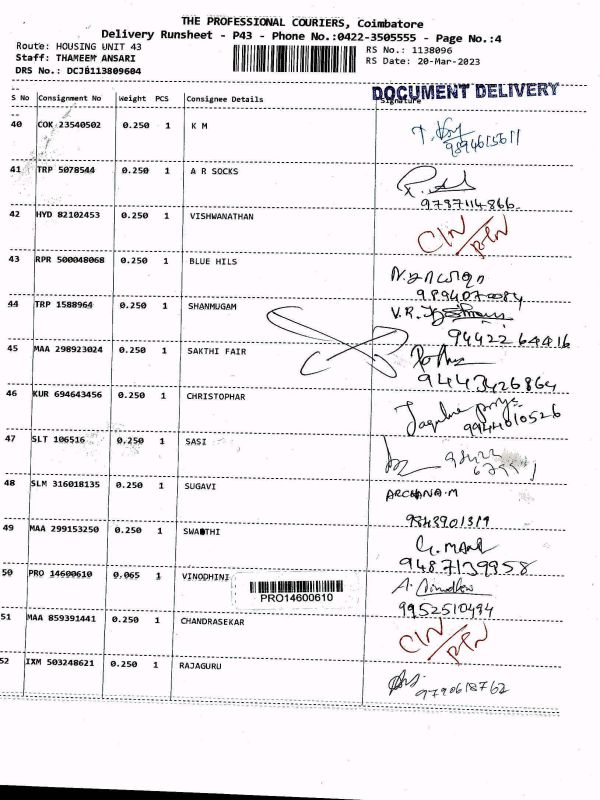 THE PROFESSIONAL COURIERS, Coimbatore
Delivery Runsheet - P43 - Phone No.:0422-3505555 - Page No.:4
Route: HOUSING UNIT 43
RS No.: 1138096
Staff: THAMEEM ANSARI
RS Date: 20-Mar-2023
DRS No.: DCJB113809604
DOCUMENT DELIVERY
S No Consignment No Weight PCS Consignee Details Signature
40 COK 23540502 0.250 1 K M
41 TRP 5078544 0.250 1 A R SOCKS
9787114866
42 HYD 82102453 0.250 1 VISHWANATHAN
43 RPR 500048068 0.250 1 BLUE HILS
9894070084
44 TRP 1588964 0.250 1 SHANMUGAM V.R.
9442264416
45 MAA 298923024 0.250 1 SAKTHI FAIR
9443426864
46 KUR 694643456 0.250 1 CHRISTOPHAR
9944010526
47 SLT 106516 0.250 1 SASI
48 SLM 316018135 0.250 1 SUGAVI ARCHANA.M
9843901319
49 MAA 299153250 0.250 1 SWATHI
9487139958
50 PRO 14600610 0.065 1 VINODHINI
PRO14600610
9952510494
51 MAA 859391441 0.250 1 CHANDRASEKAR
52 IXM 503248621 0.250 1 RAJAGURU
9790618762